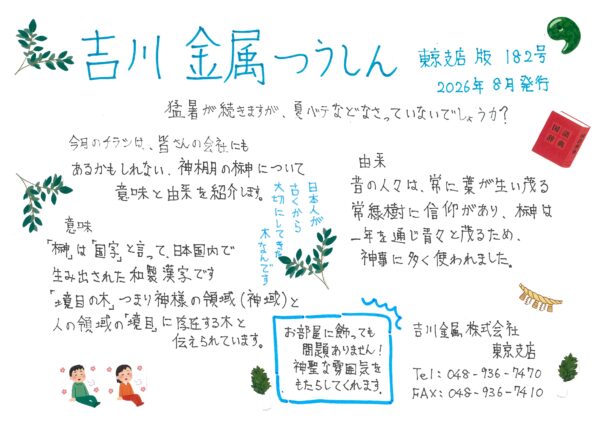 吉川 金属つうしん
東京支店 版 182号
2026年 8月 発行
猛暑が続きますが、夏バテなどなさっていないでしょうか?
今月のチラシは、皆さんの会社にも
あるかもしれない、神棚の榊について
意味と由来を紹介します。
日本人が
古くから
大切にしてきた
木なんです
意味
「榊」は「国字」と言って、日本国内で
生み出された和製漢字です
「境目の木」つまり神様の領域(神域)と
人の領域の「境目」に存在する木と
伝えられています。
由来
昔の人々は、常に葉が生い茂る
常緑樹に信仰があり、榊は
一年を通じ青々と茂るため、
神事に多く使われました。
国語
辞典
お部屋に飾っても
問題ありません!
神聖な雰囲気を
もたらしてくれます。
吉川金属株式会社
東京支店
Tel: 048-936-7470
FAX: 048-936-7410